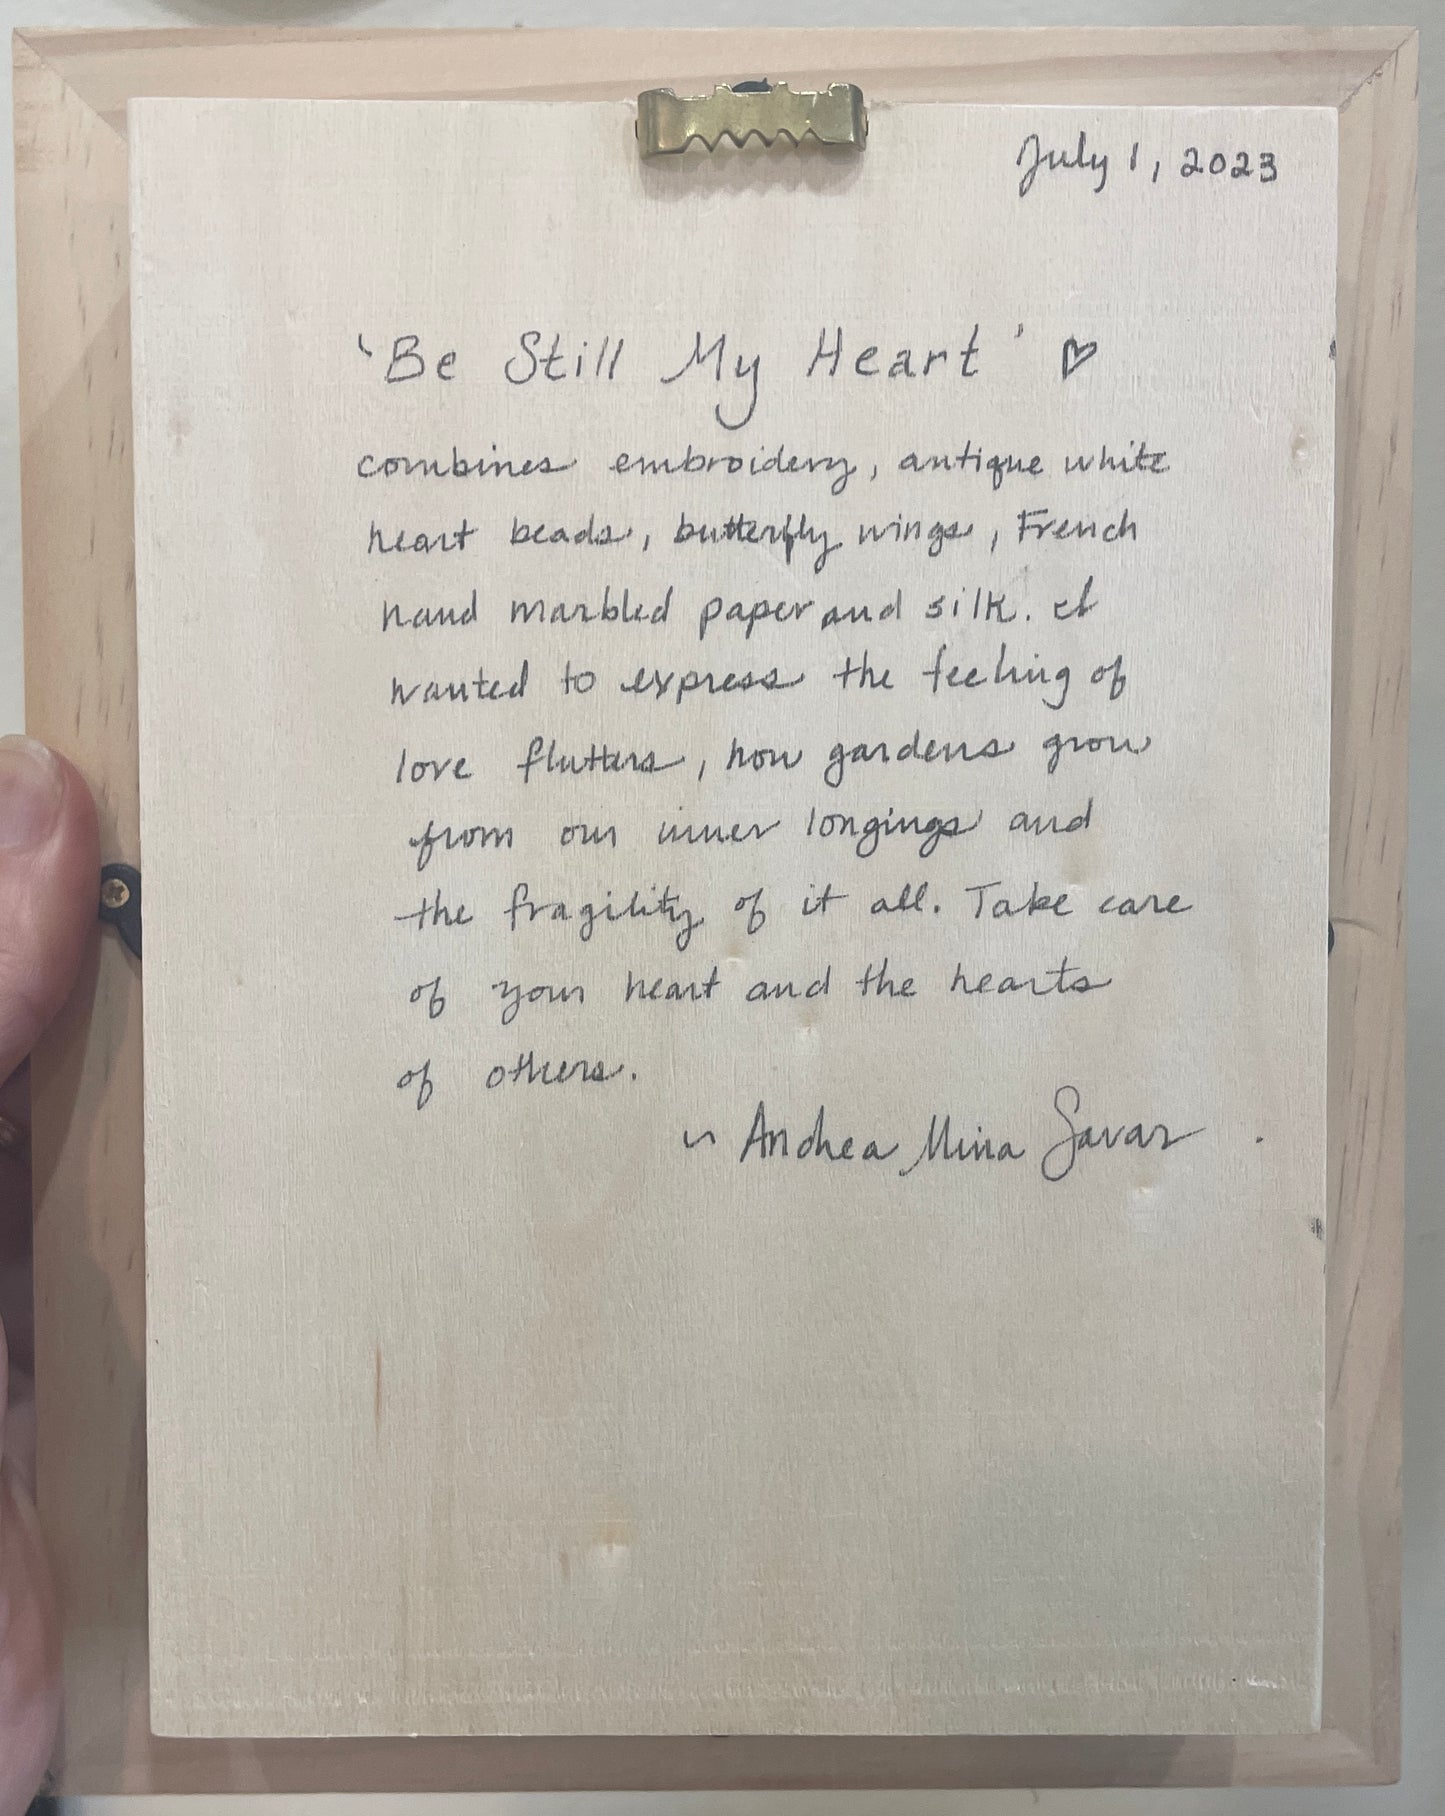 July 1, 2023
'Be Still My Heart' ♡
combines embroidery, antique white
heart beads, butterfly wings, French
hand marbled paper and silk. I
wanted to express the feeling of
love flutters, how gardens grow
from our inner longings and
the fragility of it all. Take care
of your heart and the hearts
of others.
~ Andrea Mina Savar